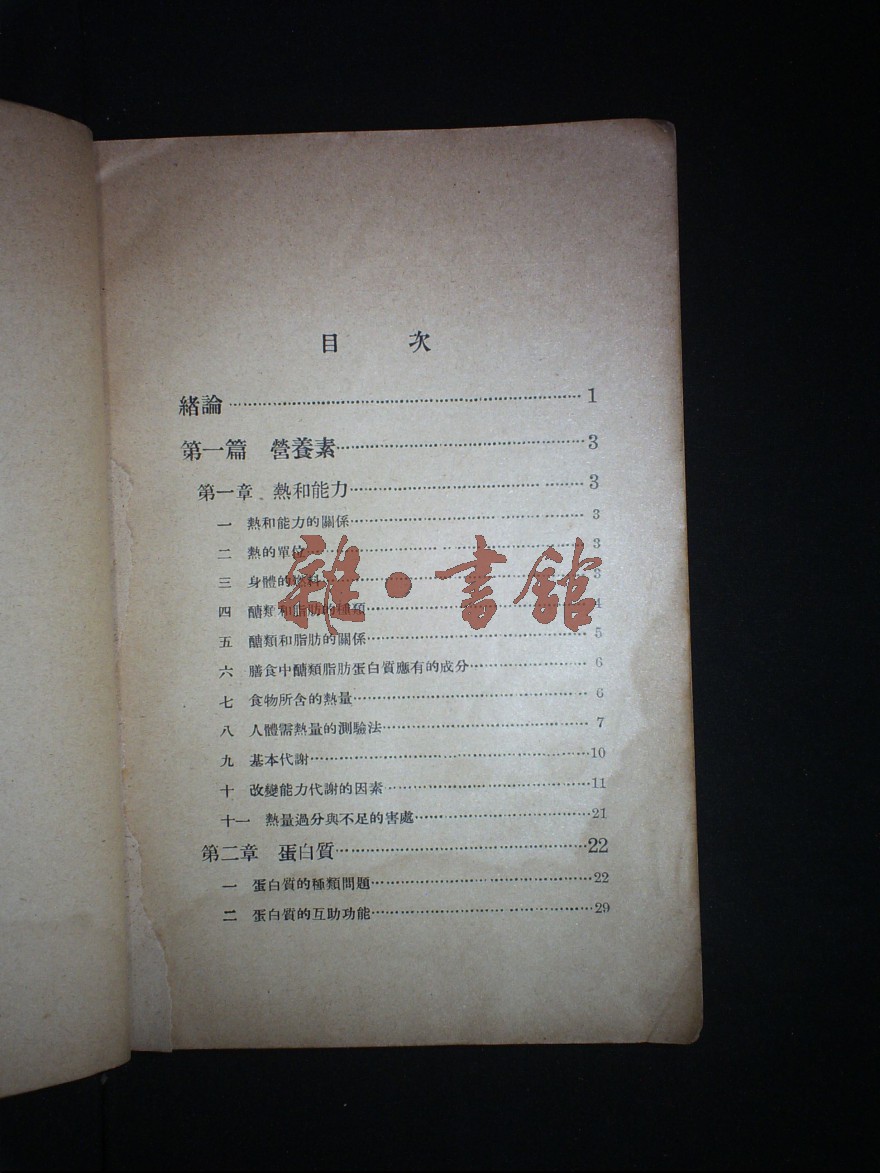 目 次
緒論……1
第一篇 營養素……3
第一章 熱和能力……3
一 熱和能力的關係……3
二 熱的單位……3
三 身體的燃料……3
四 醣類和脂肪的種類……4
五 醣類和脂肪的關係……5
六 膳食中醣類脂肪蛋白質應有的成分……6
七 食物所含的熱量……6
八 人體需熱量的測驗法……7
九 基本代謝……10
十 改變能力代謝的因素……11
十一 熱量過分與不足的害處……21
第二章 蛋白質……22
一 蛋白質的種類問題……22
二 蛋白質的互助功能……29
雜·書館